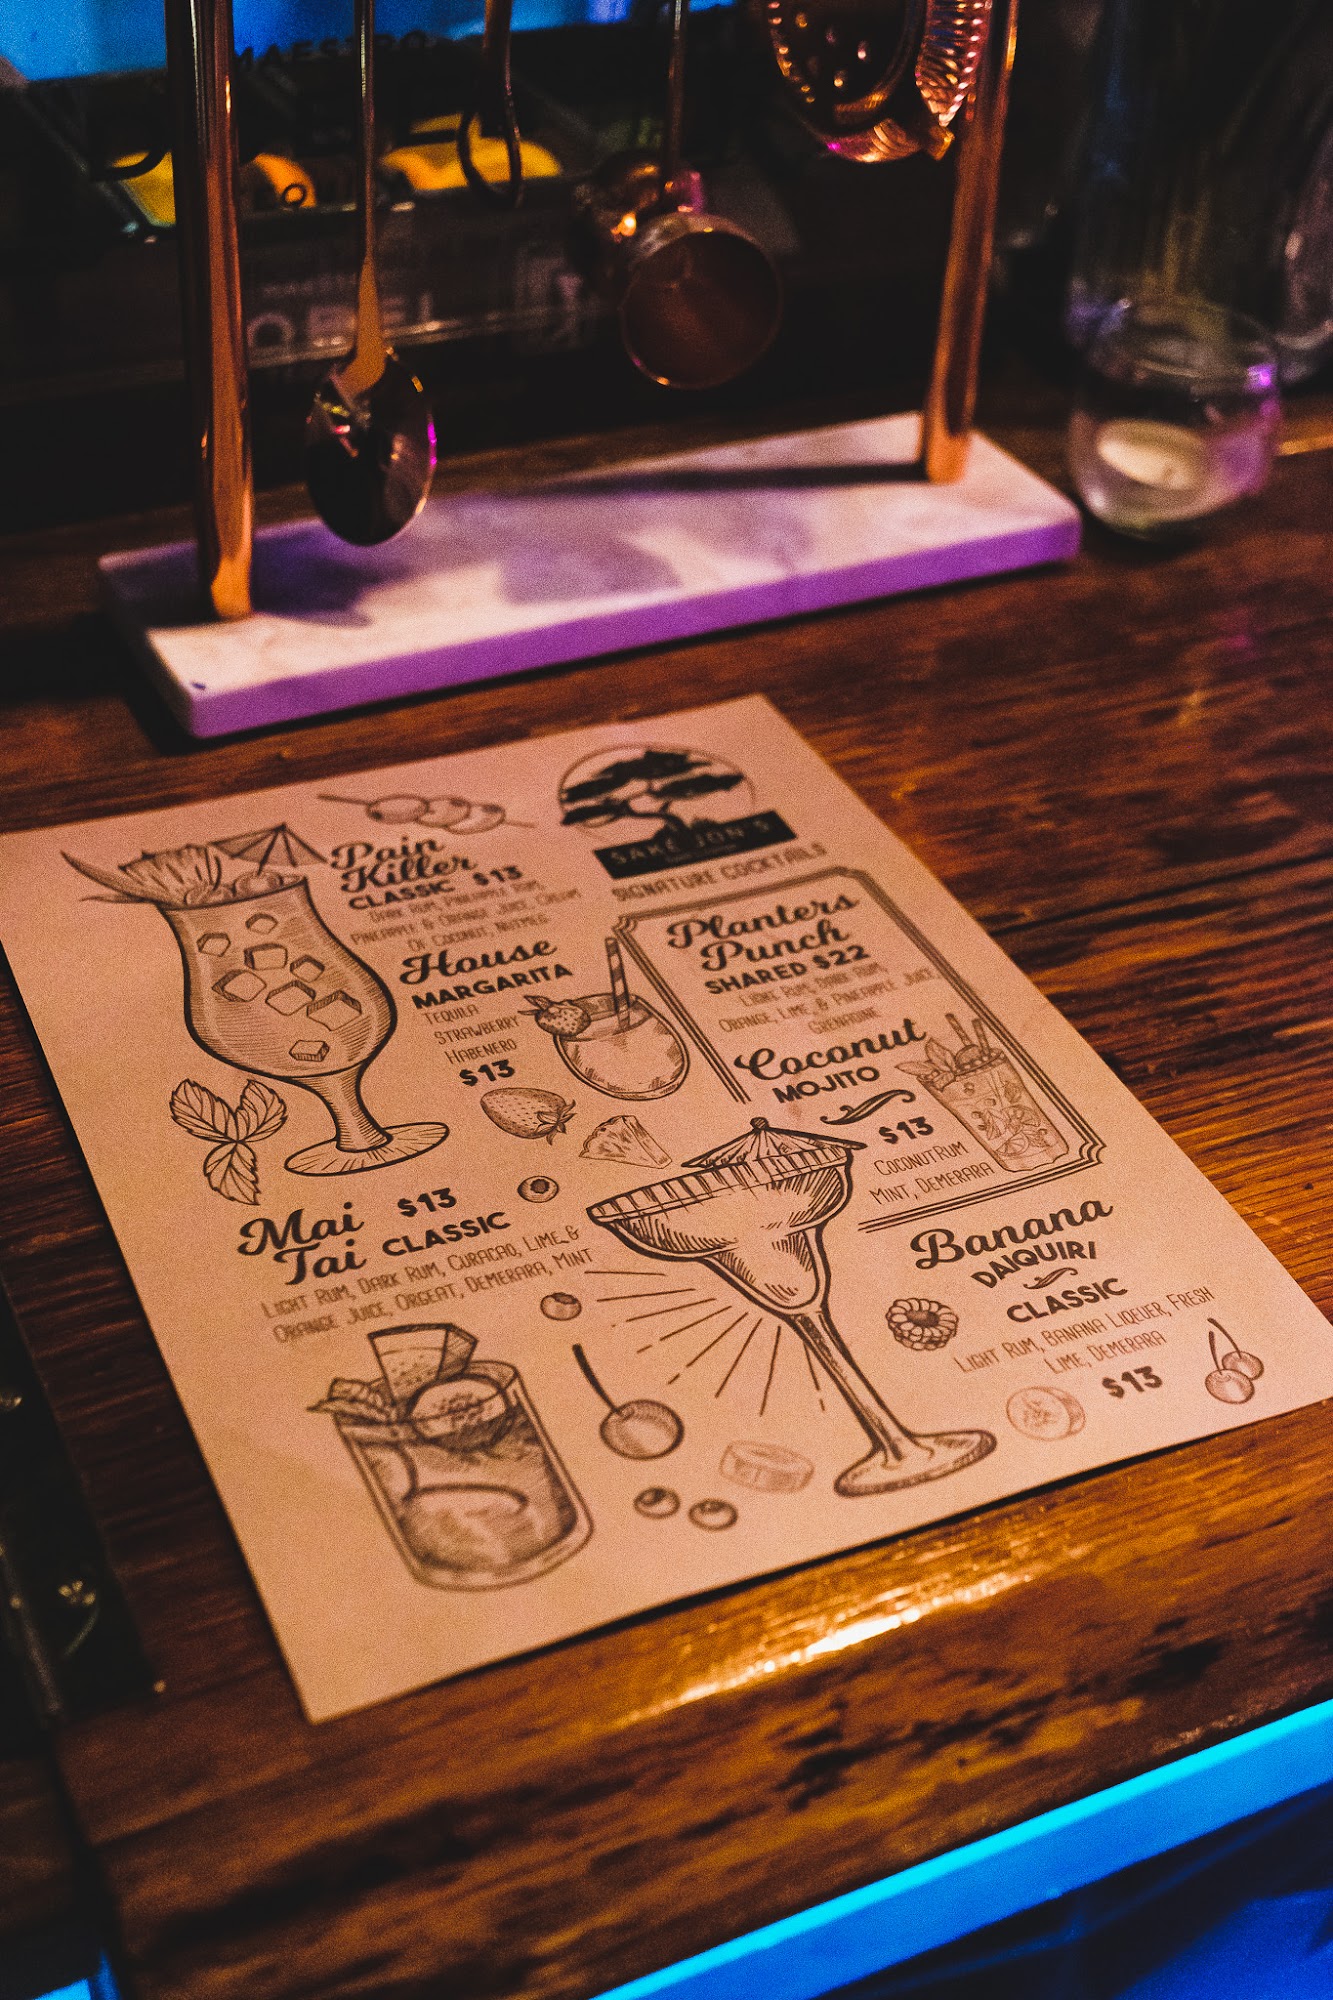 MAESTRO
SAKÉ JON'S
SIGNATURE COCKTAILS
Pain
Killer
CLASSIC $13
DARK RUM, PINEAPPLE RUM,
PINEAPPLE & ORANGE JUICE, CREAM
OF COCONUT, NUTMEG
House
MARGARITA
TEQUILA
STRAWBERRY
HABENERO
$13
Planters
Punch
SHARED $22
LIGHT RUM, DARK RUM,
ORANGE, LIME, & PINEAPPLE JUICE
GRENADINE
Coconut
MOJITO
$13
COCONUT RUM
MINT, DEMERARA
Mai
Tai
$13
CLASSIC
LIGHT RUM, DARK RUM, CURACAO, LIME, &
ORANGE JUICE, ORGEAT, DEMERARA, MINT
Banana
DAIQUIRI
CLASSIC
LIGHT RUM, BANANA LIQEUER, FRESH
LIME, DEMERARA
$13